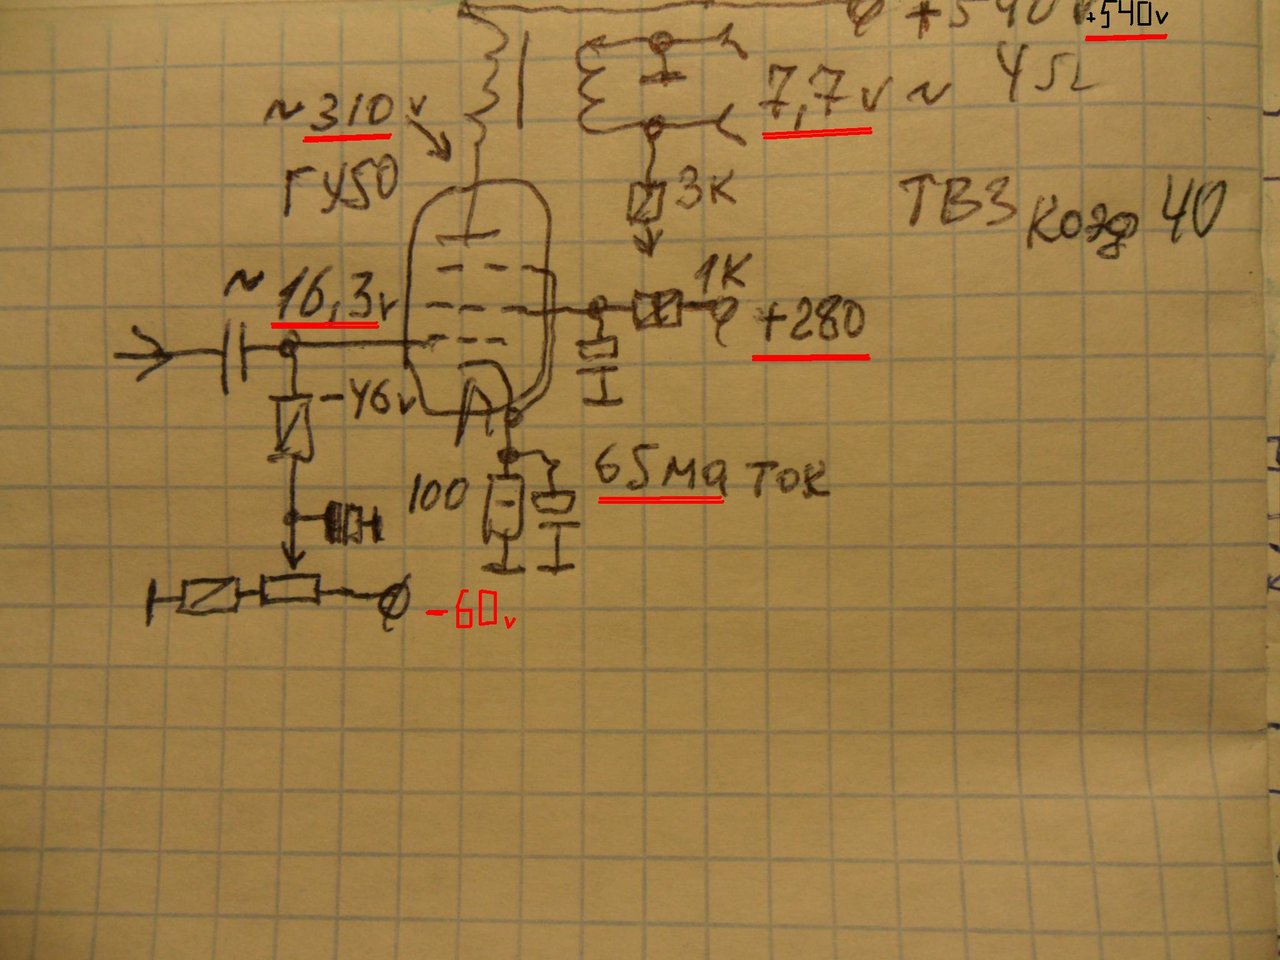 +540v
+540v
4Ω
~310v
7,7v ~
ГУ50
3К
ТВЗ Коэф 40
~16,3v
1К
+280
-46v
100
65ма ток
-60v